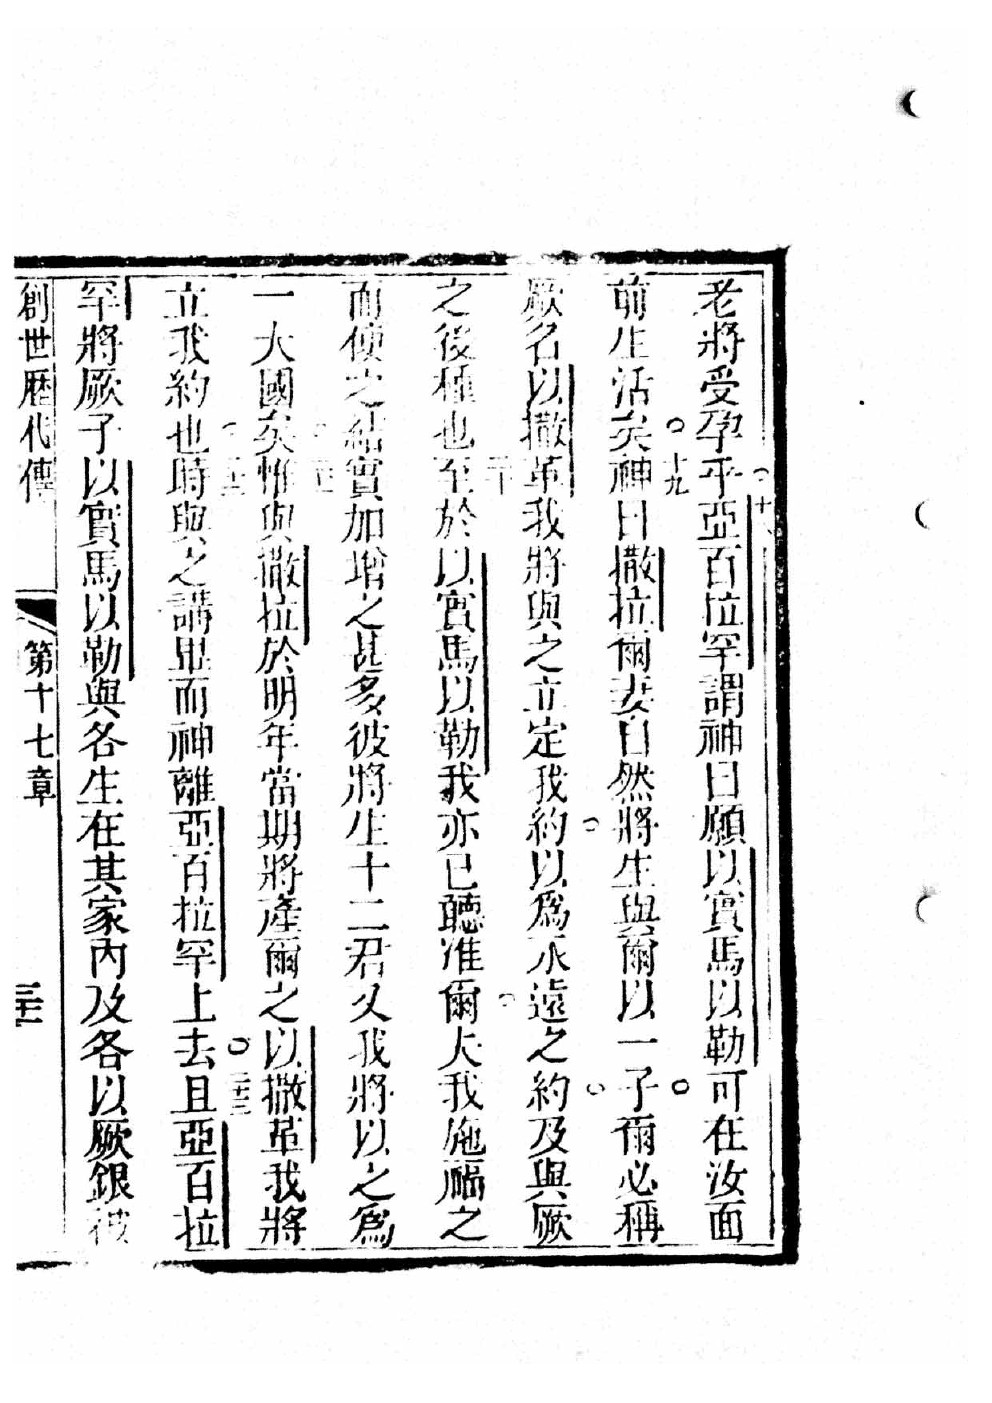 老將受孕乎亞百拉罕謂神曰願以實馬以勒可在汝面
十八
前生活矣神曰撒拉爾妻自然將生與爾以一子爾必稱
十九
厥名以撒革我將與之立定我約以爲永遠之約及與厥
之後種也至於以實馬以勒我亦已聽准爾夫我施福之
二十
而使之結實加增之甚多彼將生十二君又我將以之爲
一大國矣惟與撒拉於明年當期將產爾之以撒革我將
二十一
立我約也時與之講畢而神離亞百拉罕上去且亞百拉
二十二
二十三
罕將厥子以實馬以勒與各生在其家內及各以厥銀被
創世歷代傳
第十七章